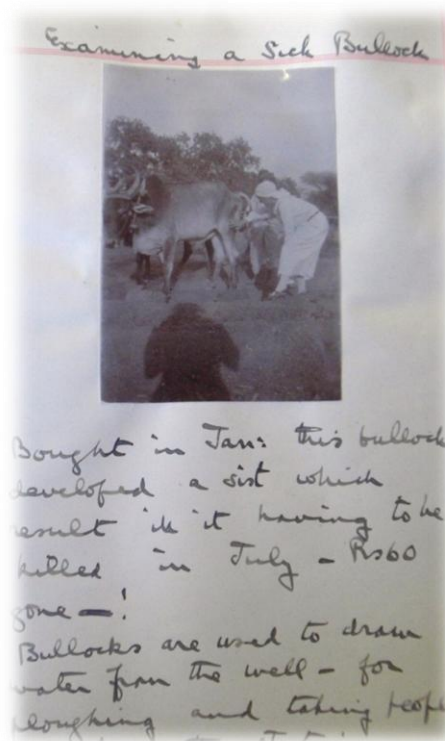 Examining a Sick Bullock
Bought in Jan: this bullock
developed a sist which
result in it having to be
killed in July - Rs60
gone —!
Bullocks are used to draw
water from the well - for
ploughing and taking